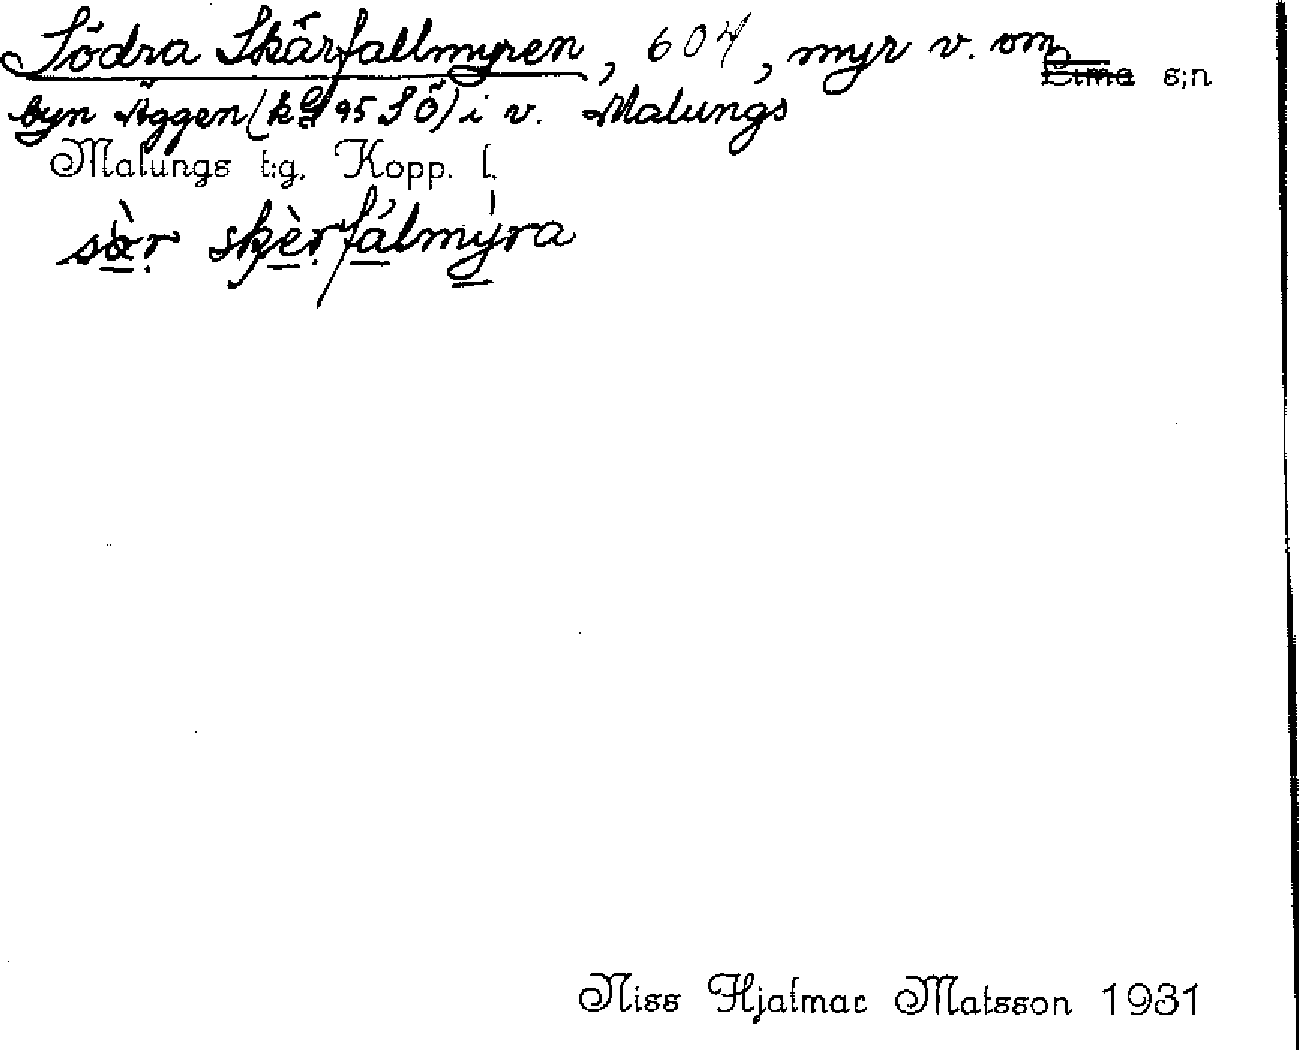 Södra Skärfallmyren, 604, myr v. om
L̶i̶m̶a̶ s;n
byn Äggen (kbl 95 SÖ) i v. Malungs
Malungs t:g. Kopp. l.
sàr skèrfálmýra
Niss Hjalmar Matsson 1931